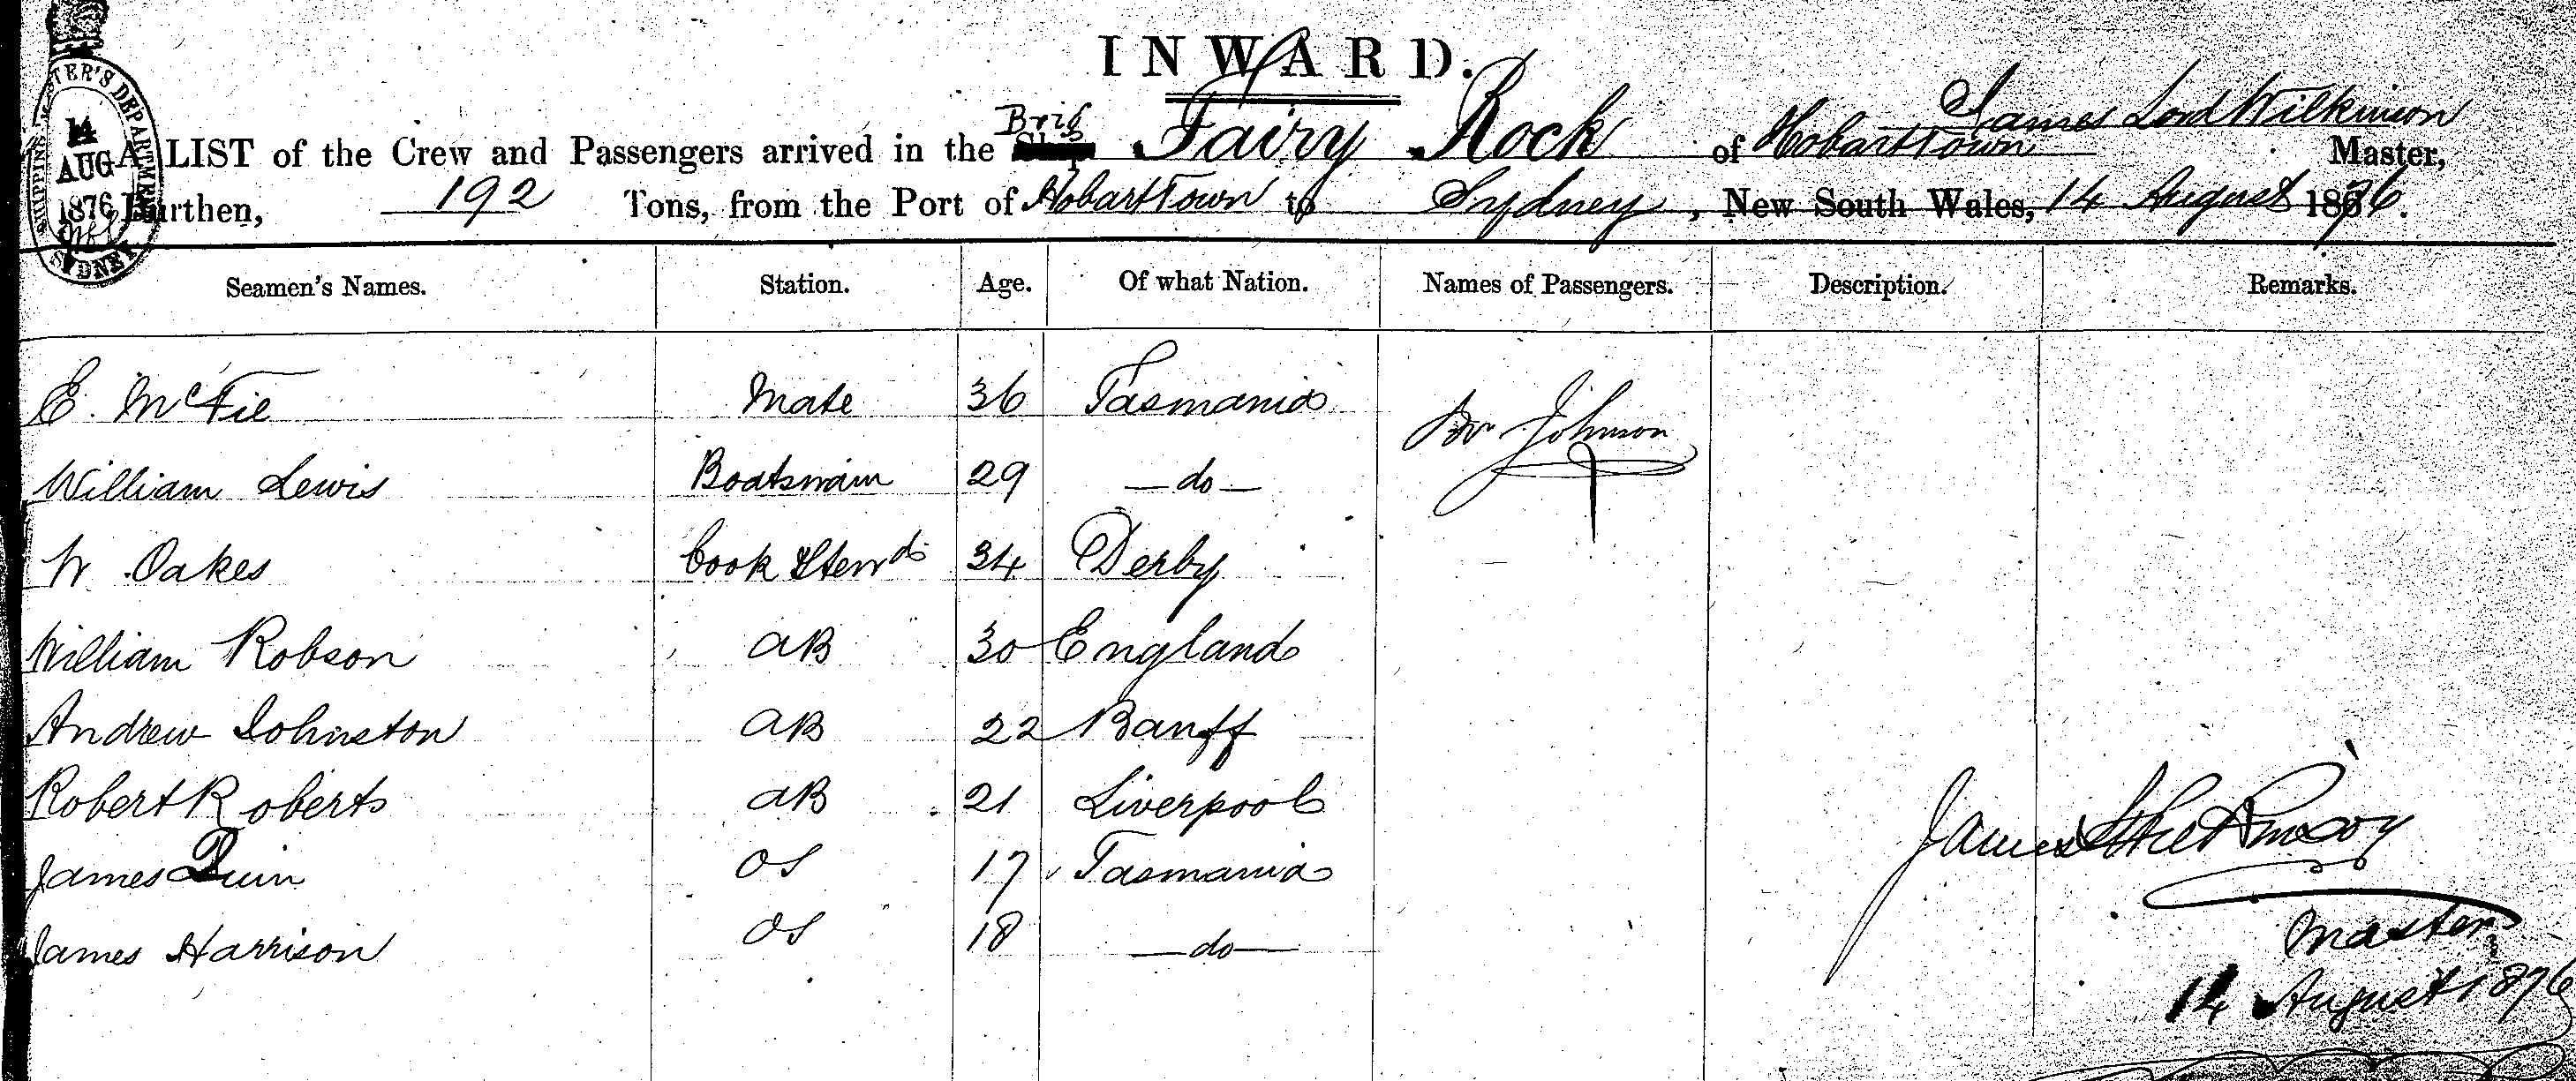 INWARD.
SHIPPING MASTER'S DEPARTMENT SYDNEY
14 AUG 1876
James Lord Wilkinson
A LIST of the Crew and Passengers arrived in the Brig Fairy Rock of Hobart Town Master,
Burthen, 192 Tons, from the Port of Hobart Town to Sydney, New South Wales, 14 August 1876.
Seamen's Names. Station. Age. Of what Nation. Names of Passengers. Description. Remarks.
E. McFie Mate 36 Tasmania
Johnson
William Lewis Boatswain 29 —do—
W Oakes Cook & Stewd 34 Derby
William Robson AB 30 England
Andrew Johnston AB 22 Banff
Robert Roberts AB 21 Liverpool
James
James Quin OS 17 Tasmania
James Harrison OS 18 —do—
Master
14 August 1876